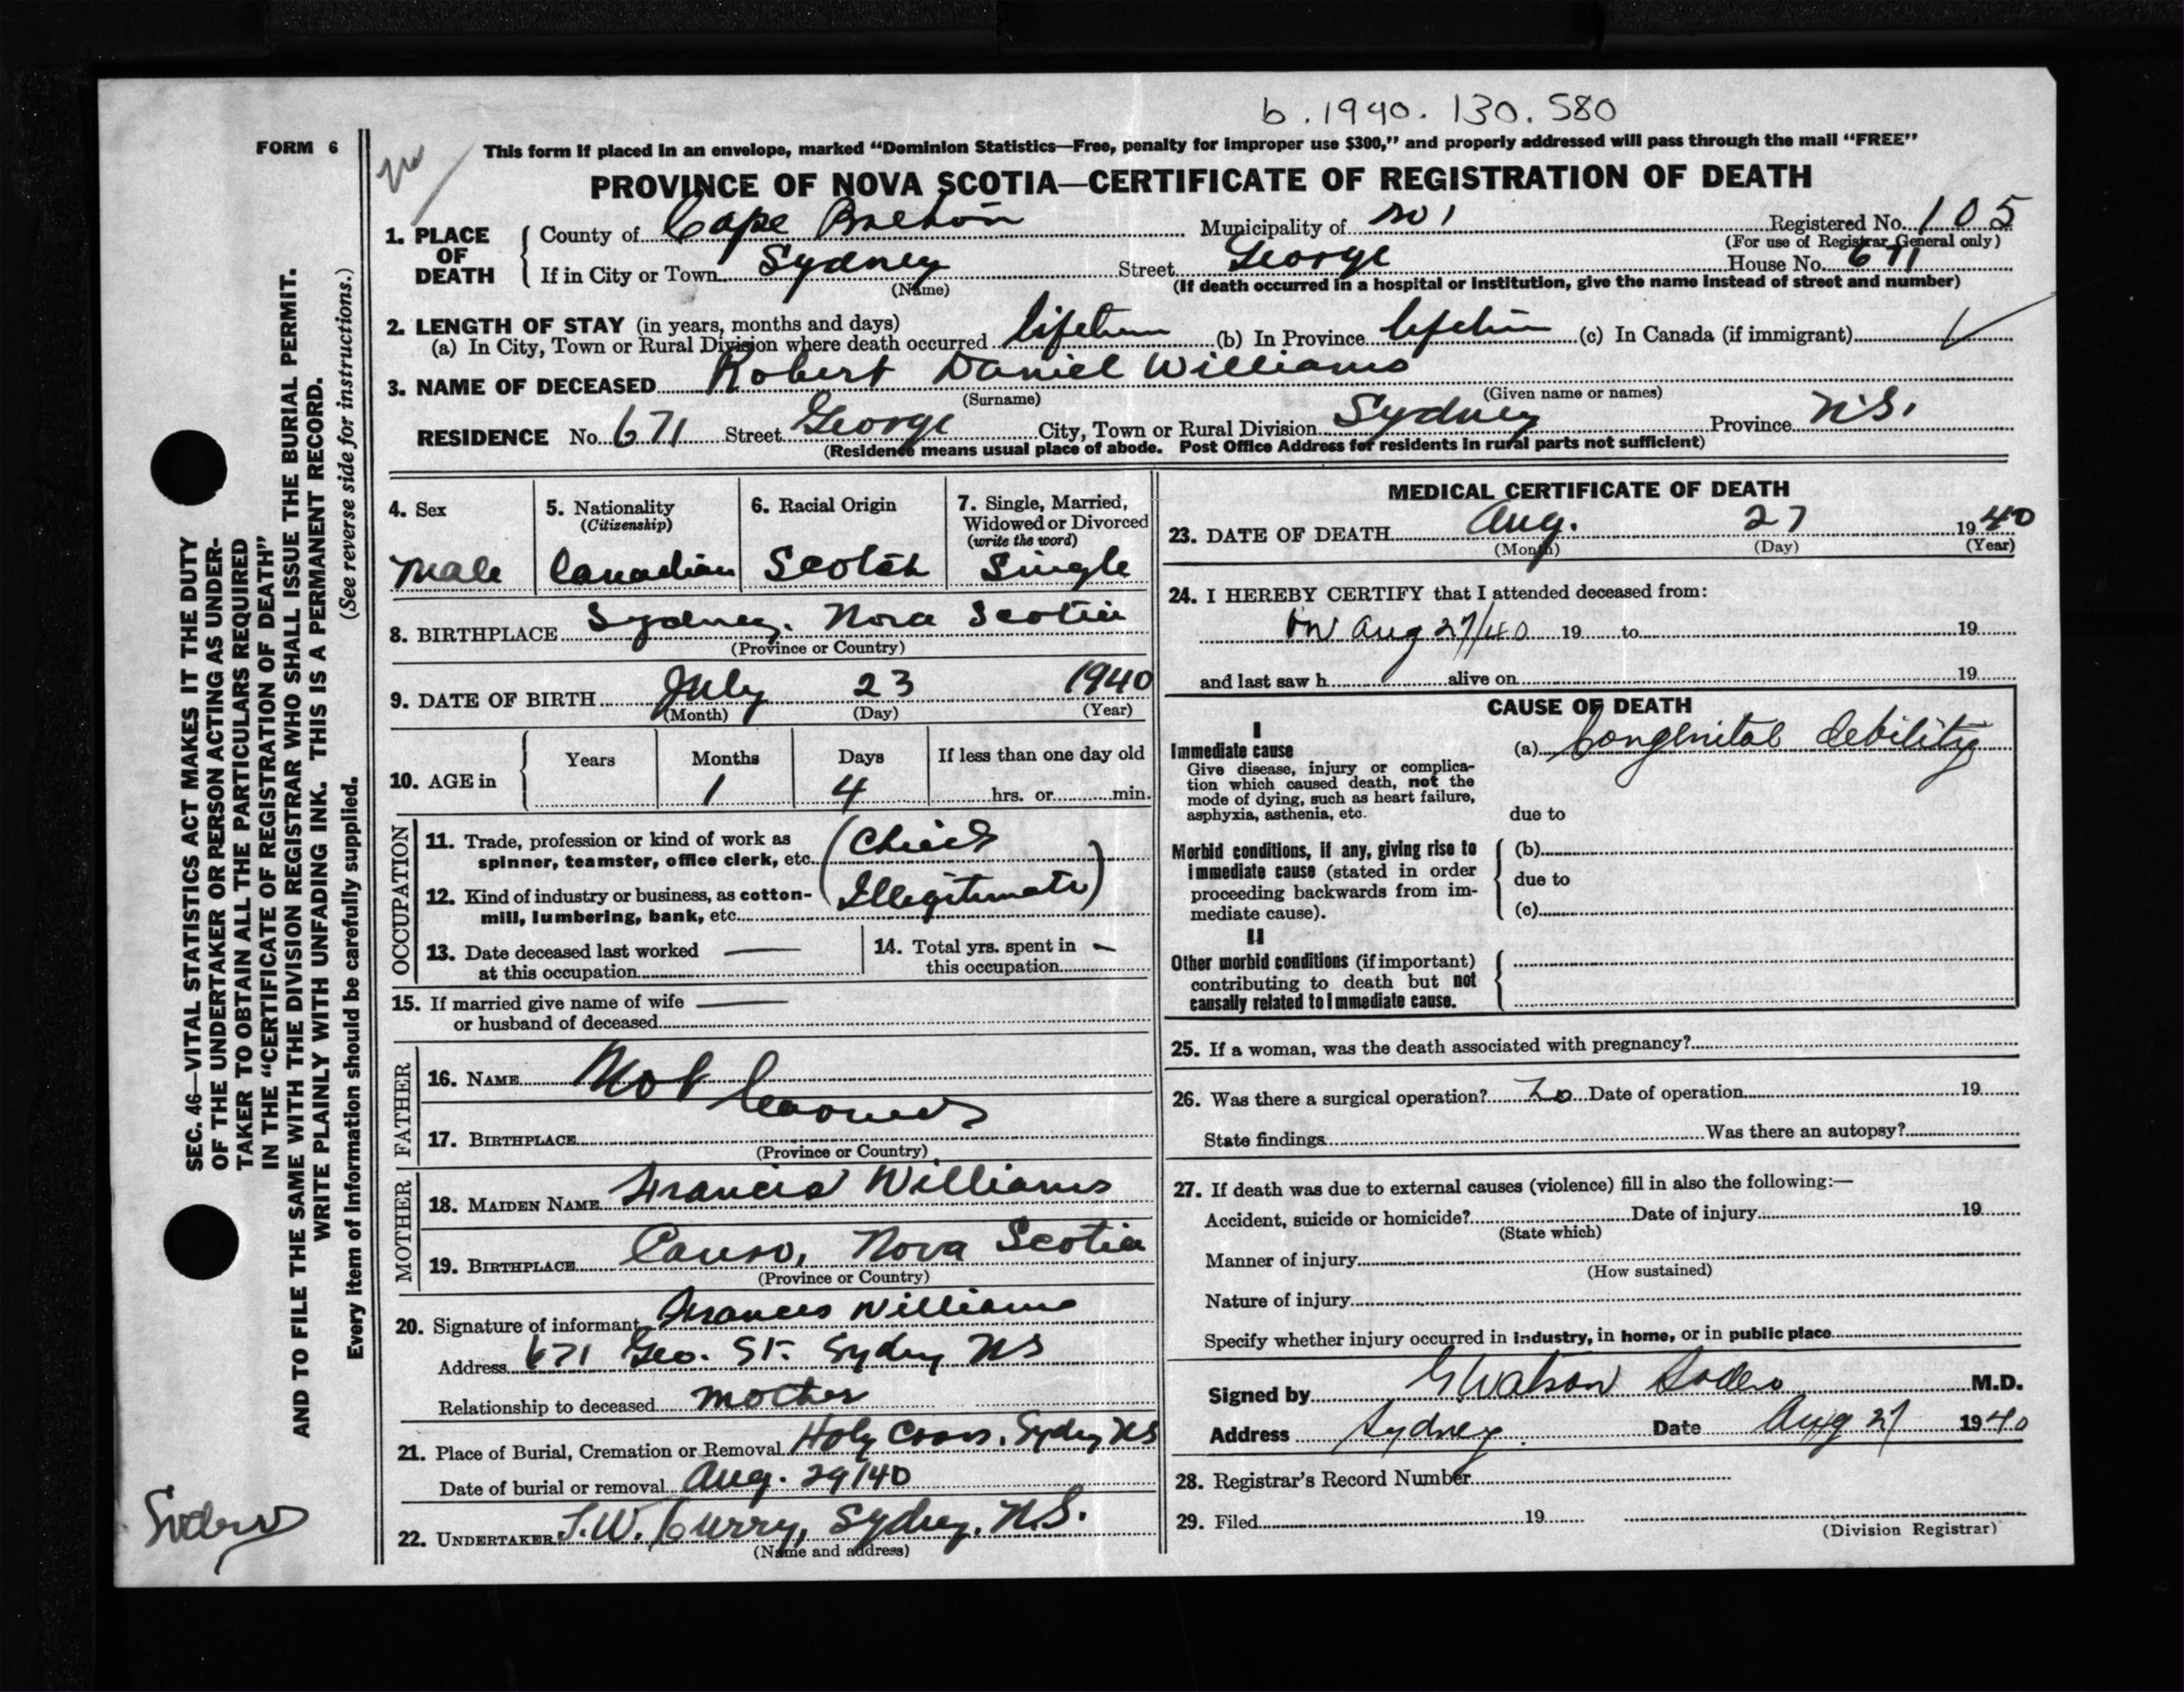 b. 1940. 130. 580
FORM 6
This form if placed in an envelope, marked “Dominion Statistics—Free, penalty for improper use $300,” and properly addressed will pass through the mail “FREE”
PROVINCE OF NOVA SCOTIA—CERTIFICATE OF REGISTRATION OF DEATH
1. PLACE OF DEATH
County of Cape Breton Municipality of No 1 Registered No. 105
(For use of Registrar General only)
If in City or Town Sydney Street George House No. 671
(Name) (If death occurred in a hospital or institution, give the name instead of street and number)
2. LENGTH OF STAY (in years, months and days)
(a) In City, Town or Rural Division where death occurred lifetime (b) In Province lifetime (c) In Canada (if immigrant)
3. NAME OF DECEASED Robert Daniel Williams
(Surname) (Given name or names)
RESIDENCE No. 671 Street George City, Town or Rural Division Sydney Province N.S.
(Residence means usual place of abode. Post Office Address for residents in rural parts not sufficient)
4. Sex
Male
5. Nationality
(Citizenship)
Canadian
6. Racial Origin
Scotch
7. Single, Married,
Widowed or Divorced
(write the word)
Single
8. BIRTHPLACE Sydney. Nova Scotia
(Province or Country)
9. DATE OF BIRTH July 23 1940
(Month) (Day) (Year)
10. AGE in
Years Months Days If less than one day old
1 4 hrs. or min.
OCCUPATION
11. Trade, profession or kind of work as
spinner, teamster, office clerk, etc. (Child
12. Kind of industry or business, as cotton-
mill, lumbering, bank, etc. Illegitimate)
13. Date deceased last worked —
at this occupation
14. Total yrs. spent in —
this occupation
15. If married give name of wife —
or husband of deceased
FATHER
16. NAME Not
17. BIRTHPLACE
(Province or Country)
MOTHER
18. MAIDEN NAME Francis Williams
19. BIRTHPLACE Canso, Nova Scotia
(Province or Country)
20. Signature of informant Frances Williams
Address 671 Geo. St. Sydney NS
Relationship to deceased mother
21. Place of Burial, Cremation or Removal Holy Cross, Sydney NS
Date of burial or removal Aug. 29/40
22. UNDERTAKER T.W. Curry, Sydney, N.S.
(Name and address)
MEDICAL CERTIFICATE OF DEATH
23. DATE OF DEATH Aug. 27 1940
(Month) (Day) (Year)
24. I HEREBY CERTIFY that I attended deceased from:
on Aug 27/40 19 to 19
and last saw h alive on 19
CAUSE OF DEATH
I
Immediate cause
Give disease, injury or complica-
tion which caused death, not the
mode of dying, such as heart failure,
asphyxia, asthenia, etc.
(a) Congenital debility
due to
Morbid conditions, if any, giving rise to
immediate cause (stated in order
proceeding backwards from im-
mediate cause).
(b)
due to
(c)
II
Other morbid conditions (if important)
contributing to death but not
causally related to immediate cause.
25. If a woman, was the death associated with pregnancy?
26. Was there a surgical operation? No Date of operation 19
State findings Was there an autopsy?
27. If death was due to external causes (violence) fill in also the following:—
Accident, suicide or homicide? Date of injury 19
(State which)
Manner of injury
(How sustained)
Nature of injury
Specify whether injury occurred in industry, in home, or in public place
Signed by G Watson Sodero M.D.
Address Sydney. Date Aug 27 1940
28. Registrar's Record Number
29. Filed 19
(Division Registrar)
SEC. 46—VITAL STATISTICS ACT MAKES IT THE DUTY
OF THE UNDERTAKER OR PERSON ACTING AS UNDER-
TAKER TO OBTAIN ALL THE PARTICULARS REQUIRED
IN THE “CERTIFICATE OF REGISTRATION OF DEATH”
AND TO FILE THE SAME WITH THE DIVISION REGISTRAR WHO SHALL ISSUE THE BURIAL PERMIT.
WRITE PLAINLY WITH UNFADING INK. THIS IS A PERMANENT RECORD.
Every item of information should be carefully supplied. (See reverse side for instructions.)
Sodero